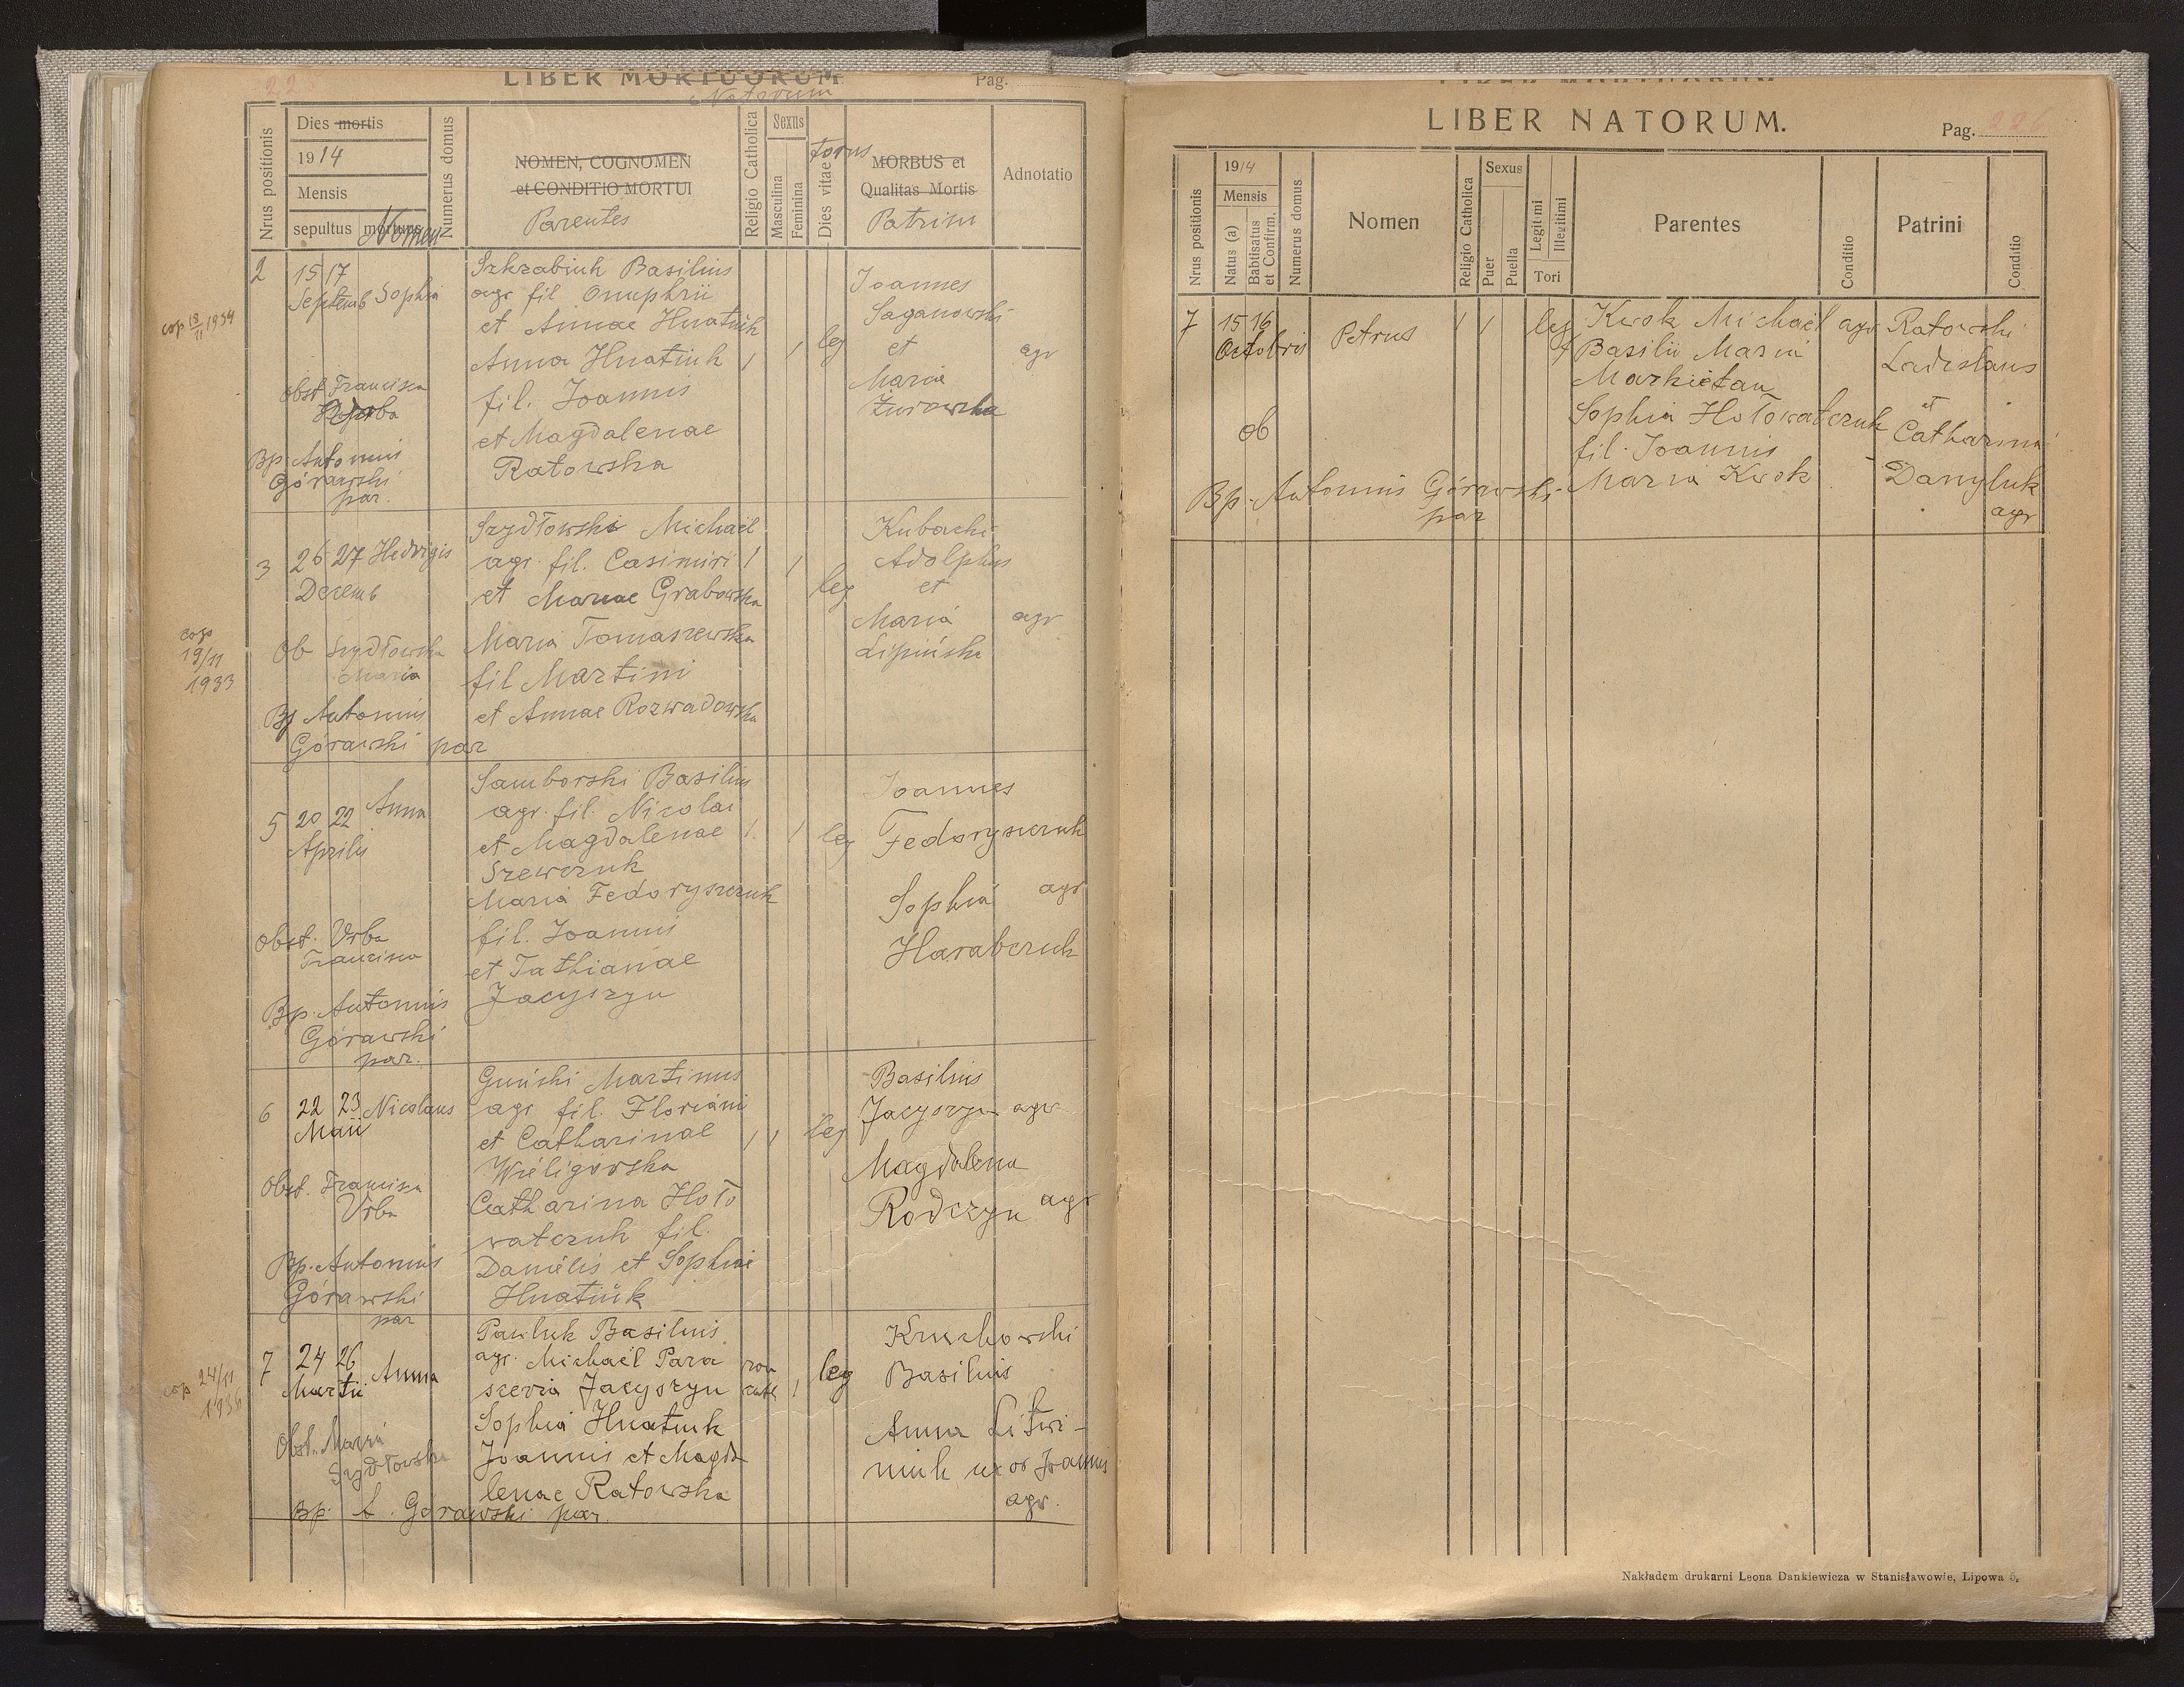 225
LIBER MORTUORUM
Natorum
Pag.
Nrus positionis
Dies mortis
1914
Mensis
sepultus mortuus
Nomen
Numerus domus
NOMEN, COGNOMEN
et CONDITIO MORTUI
Parentes
Religio Catholica
Sexus
Masculina
Feminina
Dies vitae
torus
MORBUS et
Qualitas Mortis
Patrini
Adnotatio
2
15 17
Septemb Sophia
cop 18/11 1934
obst Francisca
Bp. Antonius
Górawski
par.
Szkrabiuk Basilius
agr fil Onuphrii
et Annae Hnatiuk
Anna Hnatiuk
fil. Joannis
et Magdalenae
Ratowska
1 1 leg
Joannes
Saganowski
et
Maria
Żurowska
agr
3
26 27 Hedvigis
Decemb
cop
19/11
1933
Ob Szydłowska
Maria
Bp Antonius
Górawski par
Szydłowski Michaël
agr. fil. Casimiri
et Mariae Grabowska
Maria Tomaszewska
fil Martini
et Annae Rozwadowska
1 1 leg
Kubacki
Adolphus
et
Maria
Lipińska
agr
5
20 22 Anna
Aprilis
Obst. Vrba
Francisca
Bp. Antonius
Górawski
par.
Samborski Basilius
agr. fil. Nicolai
et Magdalenae
Szewczuk
Maria Fedoryszczuk
fil. Joannis
et Tathianae
Jacyszyn
1 1 leg
Joannes
Fedoryszczuk
Sophia agr
Harabczuk
6
22 23 Nicolaus
Maii
Obst. Francisca
Vrba
Bp. Antonius
Górawski
par
Guński Martinus
agr fil. Floriani
et Catharinae
Wieligórska
Catharina Hoło
watczuk fil.
Danielis et Sophiae
Hnatiuk
1 1 leg
Basilius
Jacyszyn agr
Magdalena
Rodczyn agr
7
24 26
Martii Anna
cop 24/11
1936
Obst. Maria
Szydłowska
Bp. A. Górawski par.
Pawluk Basilius
agr. Michaël Para
scevia Jacyszyn
Sophia Hnatiuk
Joannis et Magda
lenae Ratowska
1 leg
Kruchowski
Basilius
Anna Litwi-
niuk uxor Joannis
agr.
LIBER NATORUM.
Pag. 226
Nrus positionis
1914
Mensis
Natus (a)
Babtisatus
et Confirm.
Numerus domus
Nomen
Religio Catholica
Sexus
Puer
Puella
Legitimi
Illegitimi
Tori
Parentes
Conditio
Patrini
Conditio
7
15 16
Octobris
Petrus
1 1 leg
ob
Bp. Antonius Górawski
par
Kwok Michaël agr
Basilii Maria
Markietan
Sophia Hołowatczuk
fil. Joannis
Maria Kwok
Ratowski
Ladislaus
et
Catharina
Danyluk
agr
Nakładem drukarni Leona Dankiewicza w Stanisławowie, Lipowa 5.